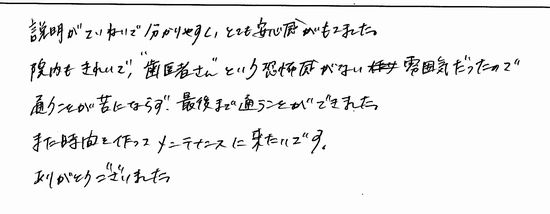 説明がていねいで分かりやすく、とても安心感がもてました。
院内もきれいで、"歯医者さん"という恐怖感がない雰囲気だったので
通うことが苦にならず、最後まで通うことができました。
また時間を作ってメンテナンスに来たいです。
ありがとうございました。